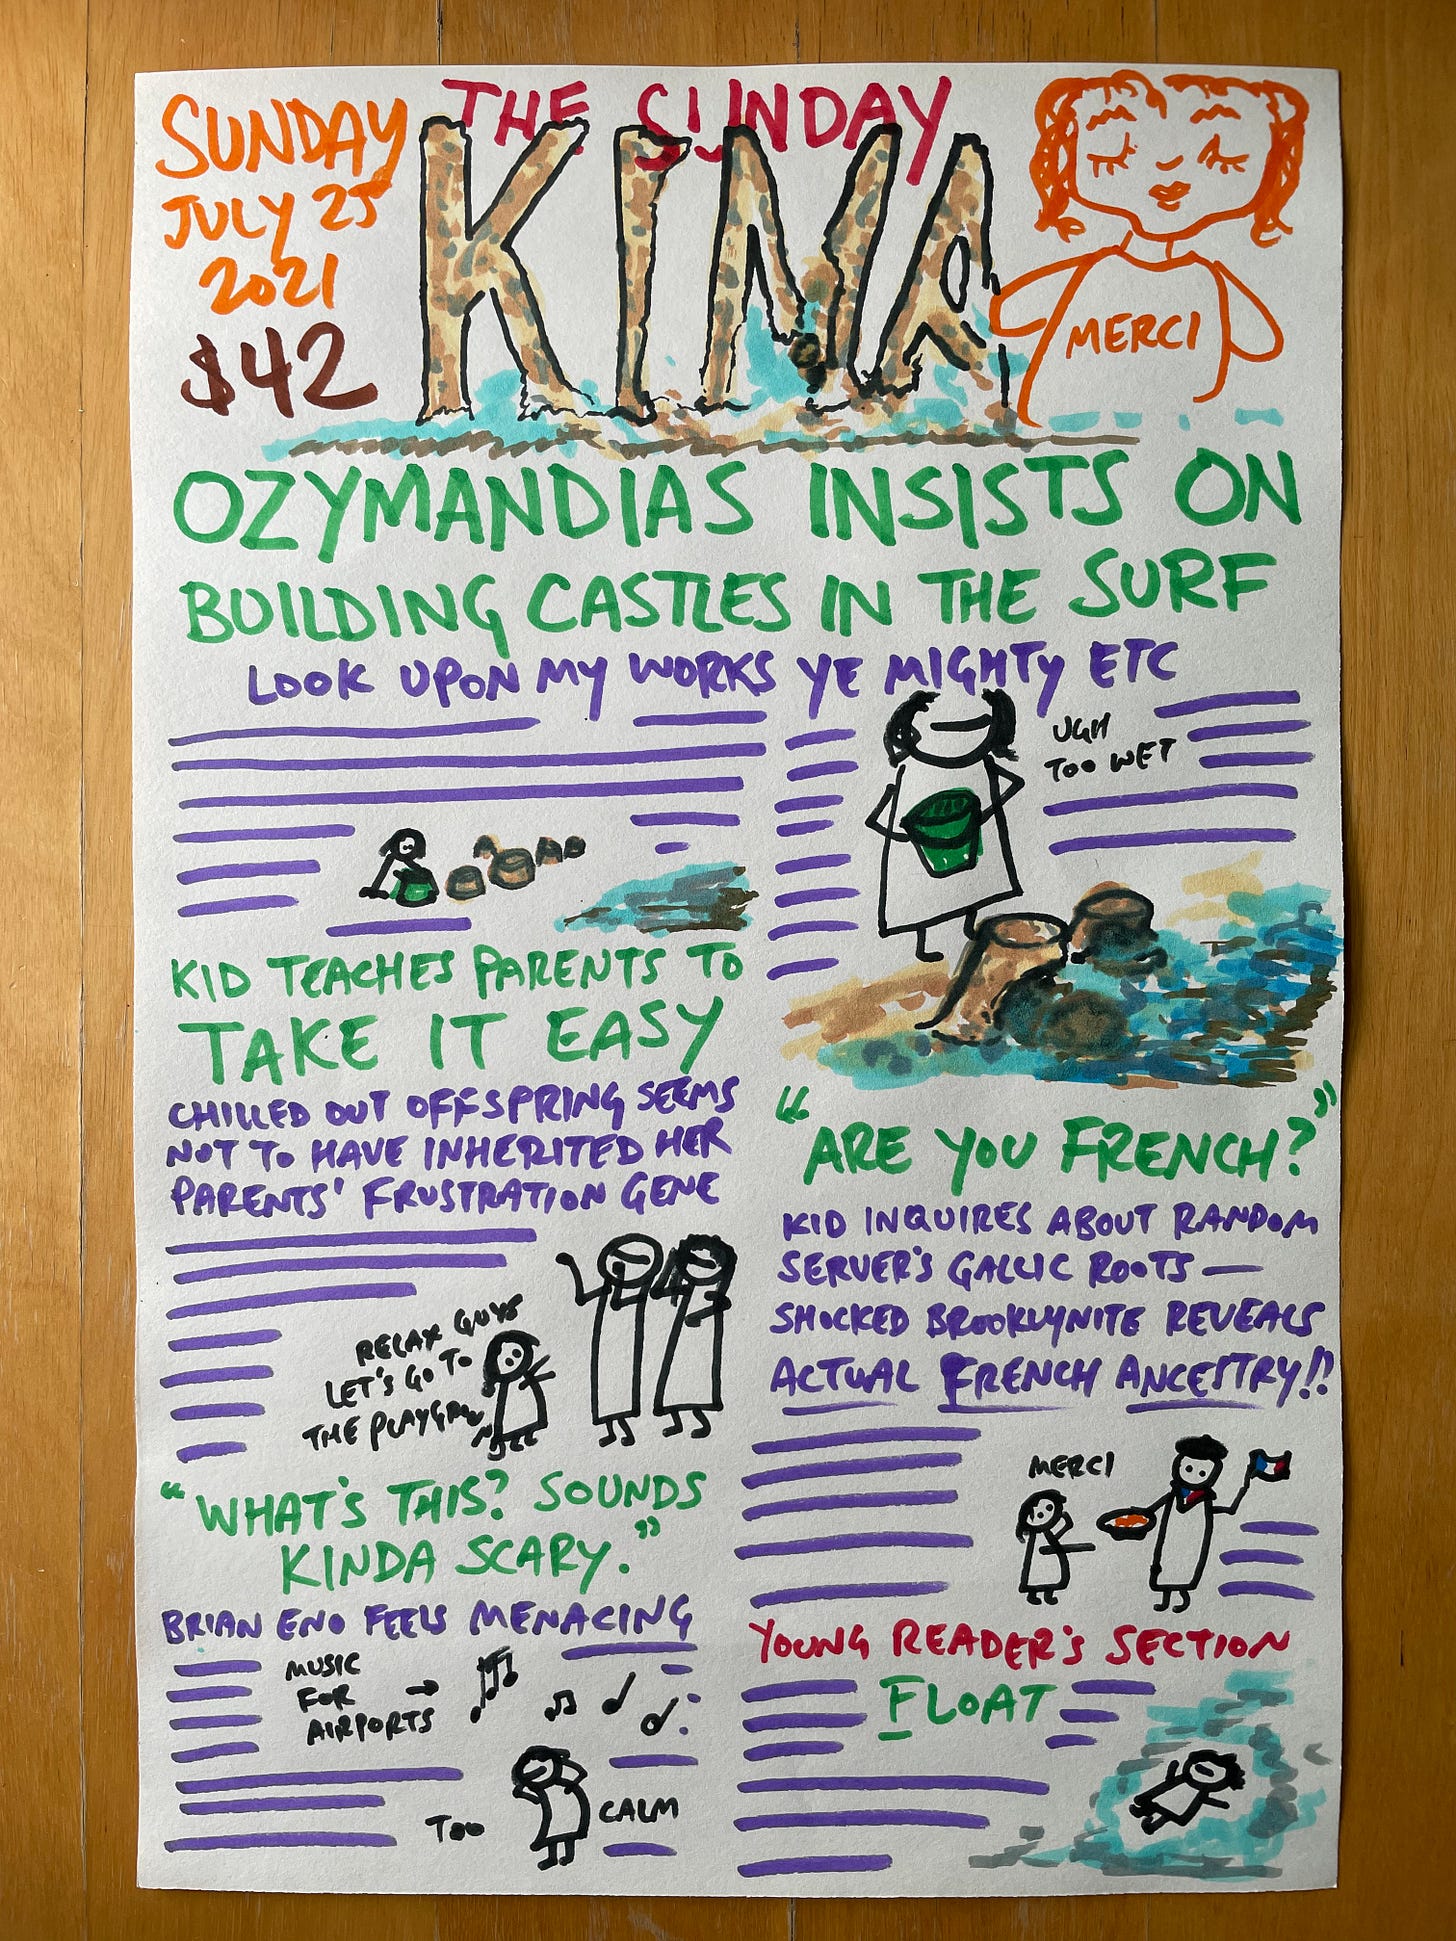 SUNDAY
JULY 25
2021
$42
THE SUNDAY
KINA
MERCI
OZYMANDIAS INSISTS ON
BUILDING CASTLES IN THE SURF
LOOK UPON MY WORKS YE MIGHTY ETC
UGH
TOO WET
KID TEACHES PARENTS TO
TAKE IT EASY
CHILLED OUT OFFSPRING SEEMS
NOT TO HAVE INHERITED HER
PARENTS' FRUSTRATION GENE
RELAX GUYS
LET'S GO TO
THE PLAYGROUND
"WHAT'S THIS? SOUNDS
KINDA SCARY."
BRIAN ENO FEELS MENACING
MUSIC
FOR
AIRPORTS →
TOO CALM
"ARE YOU FRENCH?"
KID INQUIRES ABOUT RANDOM
SERVER'S GALLIC ROOTS —
SHOCKED BROOKLYNITE REVEALS
ACTUAL FRENCH ANCESTRY!!
MERCI
YOUNG READER'S SECTION
FLOAT